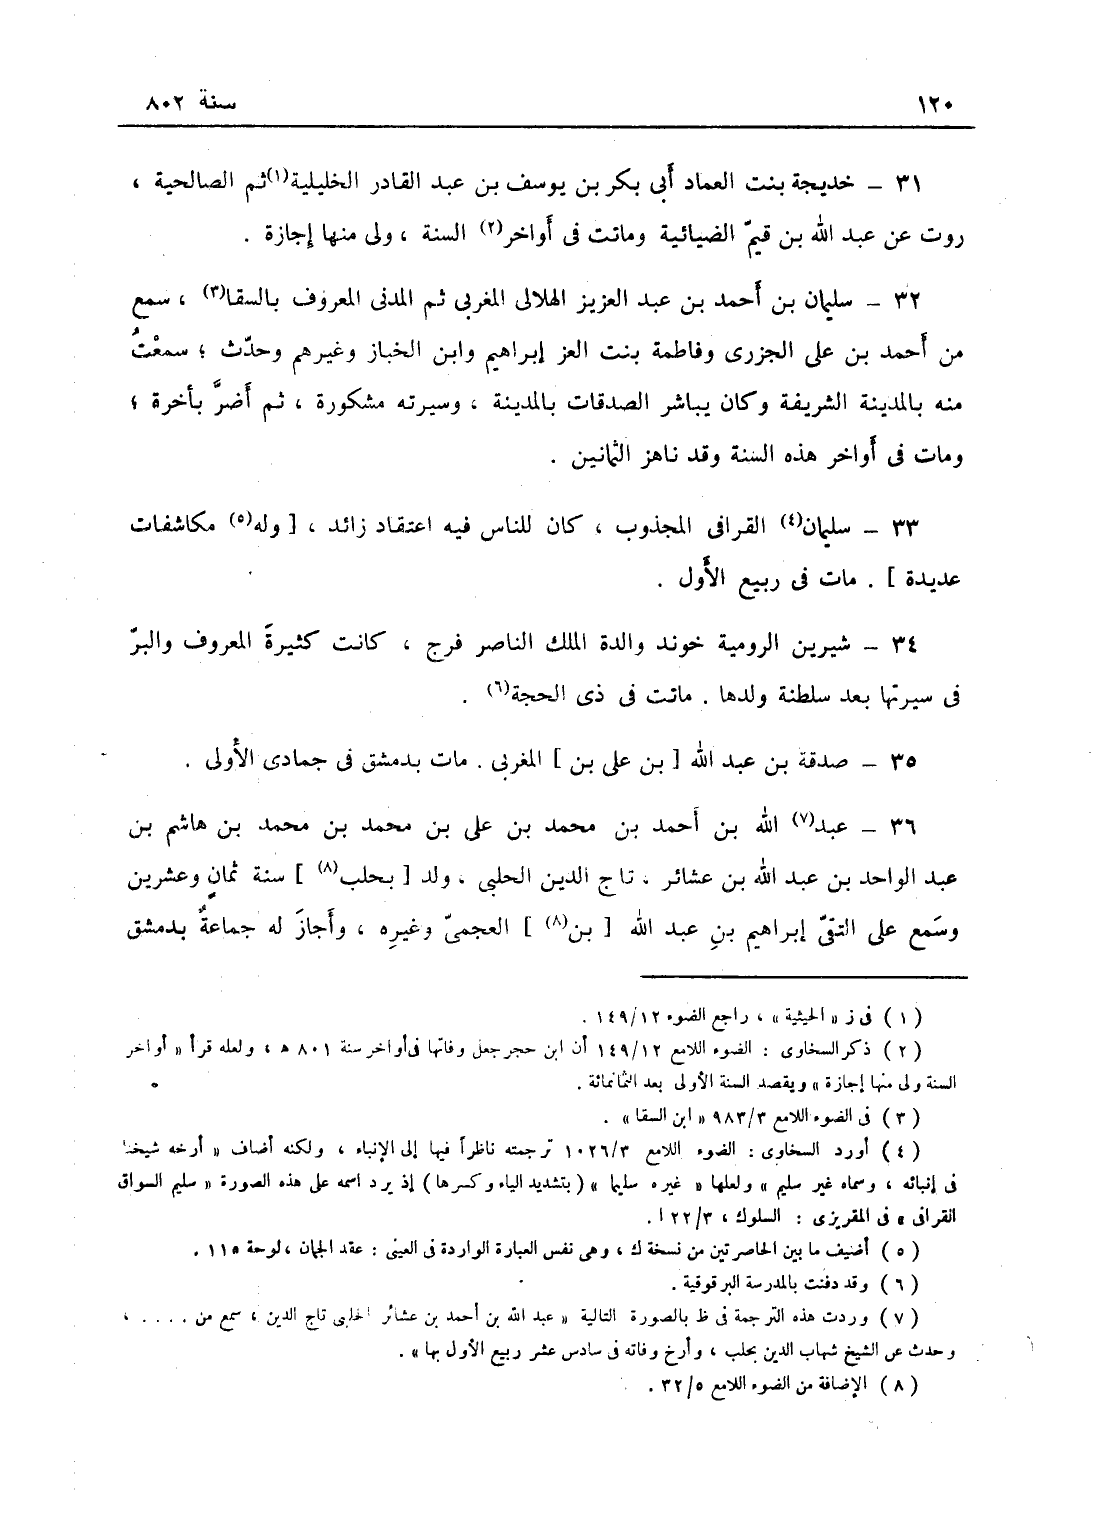 ١٢٠ سنة ٨٠٢
٣١ – خديجة بنت العماد أَبي بكر بن يوسف بن عبد القادر الخليلية(١) ثم الصالحية ،
روت عن عبد الله بن قيمّ الضيائية وماتت فى أَواخر(٢) السنة ، ولى منها إجازة .
٣٢ – سليمان بن أَحمد بن عبد العزيز الهلالى المغربى ثم المدنى المعروف بالسقا(٣) ، سمع
من أَحمد بن على الجزرى وفاطمة بنت العز إبراهيم وابن الخباز وغيرهم وحدّث ؛ سمعْتُ
منه بالمدينة الشريفة وكان يباشر الصدقات بالمدينة ، وسيرته مشكورة ، ثم أَضرَّ بأخرة ؛
ومات فى أَواخر هذه السنة وقد ناهز الثمانين .
٣٣ – سليمان(٤) القرافى المجذوب ، كان للناس فيه اعتقاد زائد ، [ وله(٥) مكاشفات
عديدة ] . مات فى ربيع الأَول .
٣٤ – شيرين الرومية خوند والدة الملك الناصر فرج ، كانت كثيرةَ المعروف والبرّ
فى سيرتها بعد سلطنة ولدها . ماتت فى ذى الحجة(٦) .
٣٥ – صدقة بن عبد الله [ بن على بن ] المغربى . مات بدمشق فى جمادى الأُولى .
٣٦ – عبد(٧) الله بن أَحمد بن محمد بن على بن محمد بن محمد بن هاشم بن
عبد الواحد بن عبد الله بن عشائر ، تاج الدين الحلبى . ولد [ بحلب(٨) ] سنة ثمانٍ وعشرين
وسَمع على التقىّ إبراهيم بنِ عبد الله [ بن(٨) ] العجمىّ وغيرِه ، وأَجازَ له جماعةٌ بدمشق
( ١ ) فى ز « الحيثية » ، راجع الضوء ١٤٩/١٢ .
( ٢ ) ذكر السخاوى : الضوء اللامع ١٤٩/١٢ أن ابن حجر جعل وفاتها فى أواخر سنة ٨٠١ ه ، ولعله قرأ « أواخر
السنة ولى منها إجازة » ويقصد السنة الأولى بعد الثمانمائة .
( ٣ ) فى الضوء اللامع ٩٨٣/٣ « ابن السقا » .
( ٤ ) أورد السخاوى : الضوء اللامع ١٠٢٦/٣ ترجمته ناظراً فيها إلى الإنباء ، ولكنه أضاف « أرخه شيخنا
فى إنبائه ، وسماه غير سليم » ولعلها « غيره سليما » ( بتشديد الياء وكسرها ) إذ يرد اسمه على هذه الصورة « سليم السواق
القرافى » فى المقريزى : السلوك ، ٢٢/٣ ا.
( ٥ ) أضيف ما بين الحاصرتين من نسخة ك ، وهى نفس العبارة الواردة فى العينى : عقد الجمان ، لوحة ١١٥ .
( ٦ ) وقد دفنت بالمدرسة البرقوقية .
( ٧ ) وردت هذه الترجمة فى ظ بالصورة التالية « عبد الله بن أحمد بن عشائر الحلبى تاج الدين ، سمع من . . . . ،
وحدث عن الشيخ شهاب الدين بحلب ، وأرخ وفاته فى سادس عشر ربيع الأول بها » .
( ٨ ) الإضافة من الضوء اللامع ٣٢/٥ .